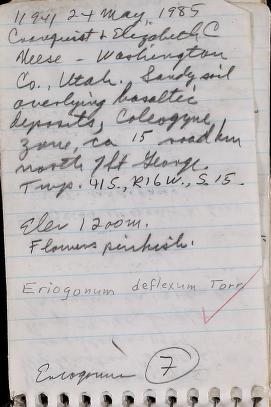 11941 24 May, 1985
Cronquist & Elizabeth C
Neese - Washington
Co., Utah. Sandy soil
overlying basaltic
deposits, Coleogyne
zone, ca 15 road km
north of St George.
Twp. 41S., R16W., S. 15.
Elev 1200m.
Flowers pinkish.
Eriogonum deflexum Torr
Eriogonum 7